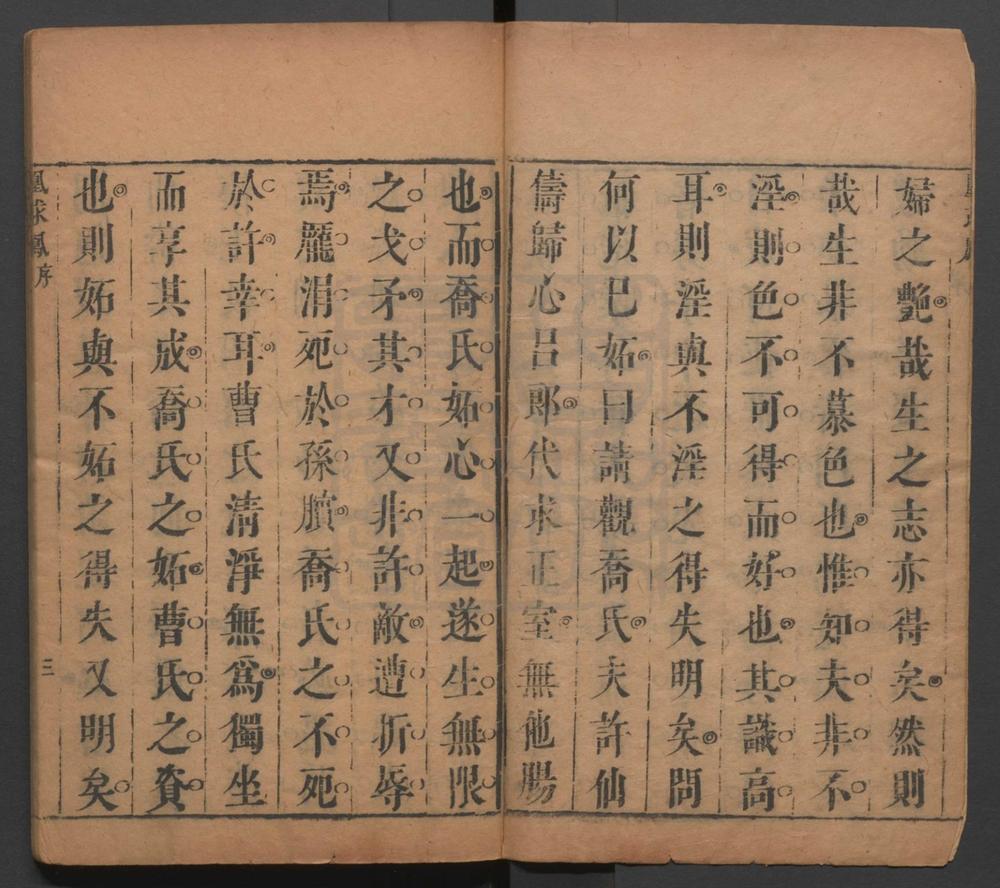 婦之艷哉生之志亦得矣然則
哉生非不慕色也惟知夫非不
淫則色不可得而好也其識高
耳則淫與不淫之得失明矣問
何以已妬曰請觀喬氏夫許仙
儔歸心呂郎代求正室無他腸
也而喬氏妬心一起遂生無限
之戈矛其才又非許敵遭折辱
焉龐涓死於孫臏喬氏之不死
於許幸耳曹氏清淨無爲獨坐
而享其成喬氏之妬曹氏之資
也則妬與不妬之得失又明矣
凰求鳳序
三